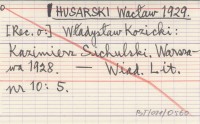 HUSARSKI Wacław 1929.
[Rec. o:] Władysław Kozicki:
Kazimierz Sichulski, Warsza-
wa 1928. — Wiad. Lit.
nr 10: 5.